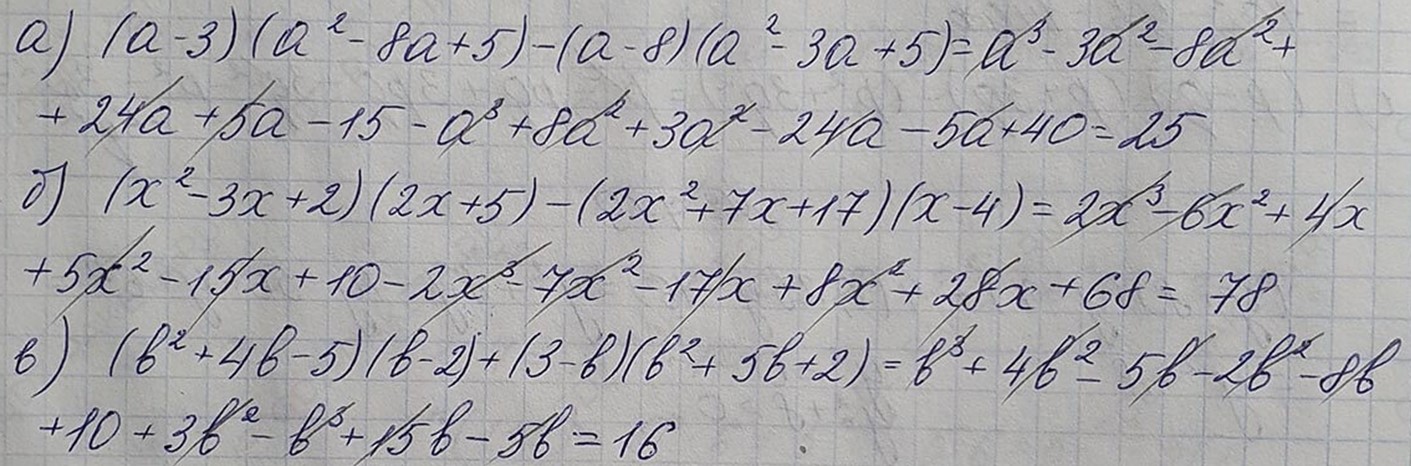 а) (a-3)(a²-8a+5)-(a-8)(a²-3a+5)=a³-3a²-8a²+
+24a+5a-15-a³+8a²+3a²-24a-5a+40=25
б) (x²-3x+2)(2x+5)-(2x²+7x+17)(x-4)=2x³-6x²+4x
+5x²-15x+10-2x³-7x²-17x+8x²+28x+68=78
в) (b²+4b-5)(b-2)+(3-b)(b²+5b+2)=b³+4b²-5b-2b²-8b
+10+3b²-b³+15b-5b=16